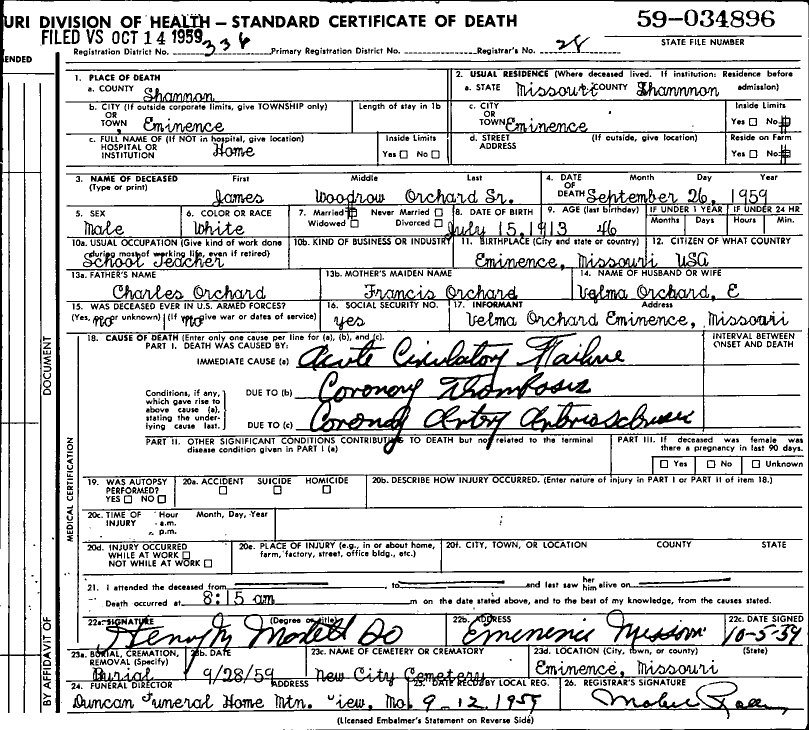 URI DIVISION OF HEALTH — STANDARD CERTIFICATE OF DEATH 59-034896
FILED VS OCT 14 1959 STATE FILE NUMBER
Registration District No. 336 Primary Registration District No. Registrar's No. 28
ENDED
1. PLACE OF DEATH 2. USUAL RESIDENCE (Where deceased lived. If institution: Residence before admission)
a. COUNTY Shannon a. STATE Missouri COUNTY Shannnon
b. CITY (If outside corporate limits, give TOWNSHIP only) Length of stay in 1b c. CITY Inside Limits
OR TOWN Eminence OR TOWN Eminence Yes No
c. FULL NAME OF (If NOT in hospital, give location) Inside Limits d. STREET (If outside, give location) Reside on Farm
HOSPITAL OR INSTITUTION Home Yes No ADDRESS Yes No
3. NAME OF DECEASED First Middle Last 4. DATE Month Day Year
(Type or print) James Woodrow Orchard Sr. OF DEATH September 26, 1959
5. SEX 6. COLOR OR RACE 7. Married Never Married 8. DATE OF BIRTH 9. AGE (last birthday) IF UNDER 1 YEAR IF UNDER 24 HR
Male White Widowed Divorced July 15, 1913 46 Months Days Hours Min.
10a. USUAL OCCUPATION (Give kind of work done during most of working life, even if retired) 10b. KIND OF BUSINESS OR INDUSTRY 11. BIRTHPLACE (City and state or country) 12. CITIZEN OF WHAT COUNTRY
School Teacher Eminence, Missouri USA
13a. FATHER'S NAME 13b. MOTHER'S MAIDEN NAME 14. NAME OF HUSBAND OR WIFE
Charles Orchard Francis Orchard Velma Orchard, E
15. WAS DECEASED EVER IN U.S. ARMED FORCES? 16. SOCIAL SECURITY NO. 17. INFORMANT Address
(Yes, no, or unknown) (If yes, give war or dates of service) no no yes Velma Orchard Eminence, Missouri
18. CAUSE OF DEATH (Enter only one cause per line for (a), (b), and (c). INTERVAL BETWEEN ONSET AND DEATH
PART I. DEATH WAS CAUSED BY:
IMMEDIATE CAUSE (a) Acute Circulatory Failure
Conditions, if any, which gave rise to above cause (a), stating the underlying cause last.
DUE TO (b) Coronary Thombosis
DUE TO (c) Coronary Artery
PART II. OTHER SIGNIFICANT CONDITIONS CONTRIBUTING TO DEATH but not related to the terminal disease condition given in PART I (a)
PART III. If deceased was female was there a pregnancy in last 90 days.
Yes No Unknown
19. WAS AUTOPSY PERFORMED? YES NO 20a. ACCIDENT SUICIDE HOMICIDE 20b. DESCRIBE HOW INJURY OCCURRED. (Enter nature of injury in PART I or PART II of item 18.)
20c. TIME OF INJURY Hour a.m. p.m. Month, Day, Year
20d. INJURY OCCURRED WHILE AT WORK NOT WHILE AT WORK 20e. PLACE OF INJURY (e.g., in or about home, farm, factory, street, office bldg., etc.) 20f. CITY, TOWN, OR LOCATION COUNTY STATE
21. I attended the deceased from to and last saw her him alive on
Death occurred at 8:15 am m on the date stated above, and to the best of my knowledge, from the causes stated.
22a. SIGNATURE (Degree or title) 22b. ADDRESS 22c. DATE SIGNED
Henry M DO Eminence Missouri 10-5-59
23a. BURIAL, CREMATION, REMOVAL (Specify) 23b. DATE 23c. NAME OF CEMETERY OR CREMATORY 23d. LOCATION (City, town, or county) (State)
Burial 9/28/59 New City Cemetery Eminence, Missouri
24. FUNERAL DIRECTOR ADDRESS 25. DATE RECD BY LOCAL REG. 26. REGISTRAR'S SIGNATURE
Duncan Funeral Home Mtn. iew, Mo. 9-12-1959
(Licensed Embalmer's Statement on Reverse Side)
DOCUMENT
MEDICAL CERTIFICATION
BY AFFIDAVIT OF